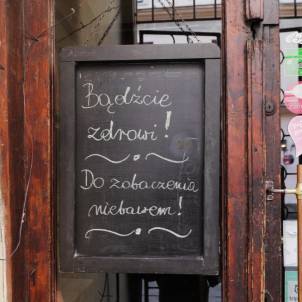 Bądźcie
zdrowi!
Do zobaczenia
niebawem!